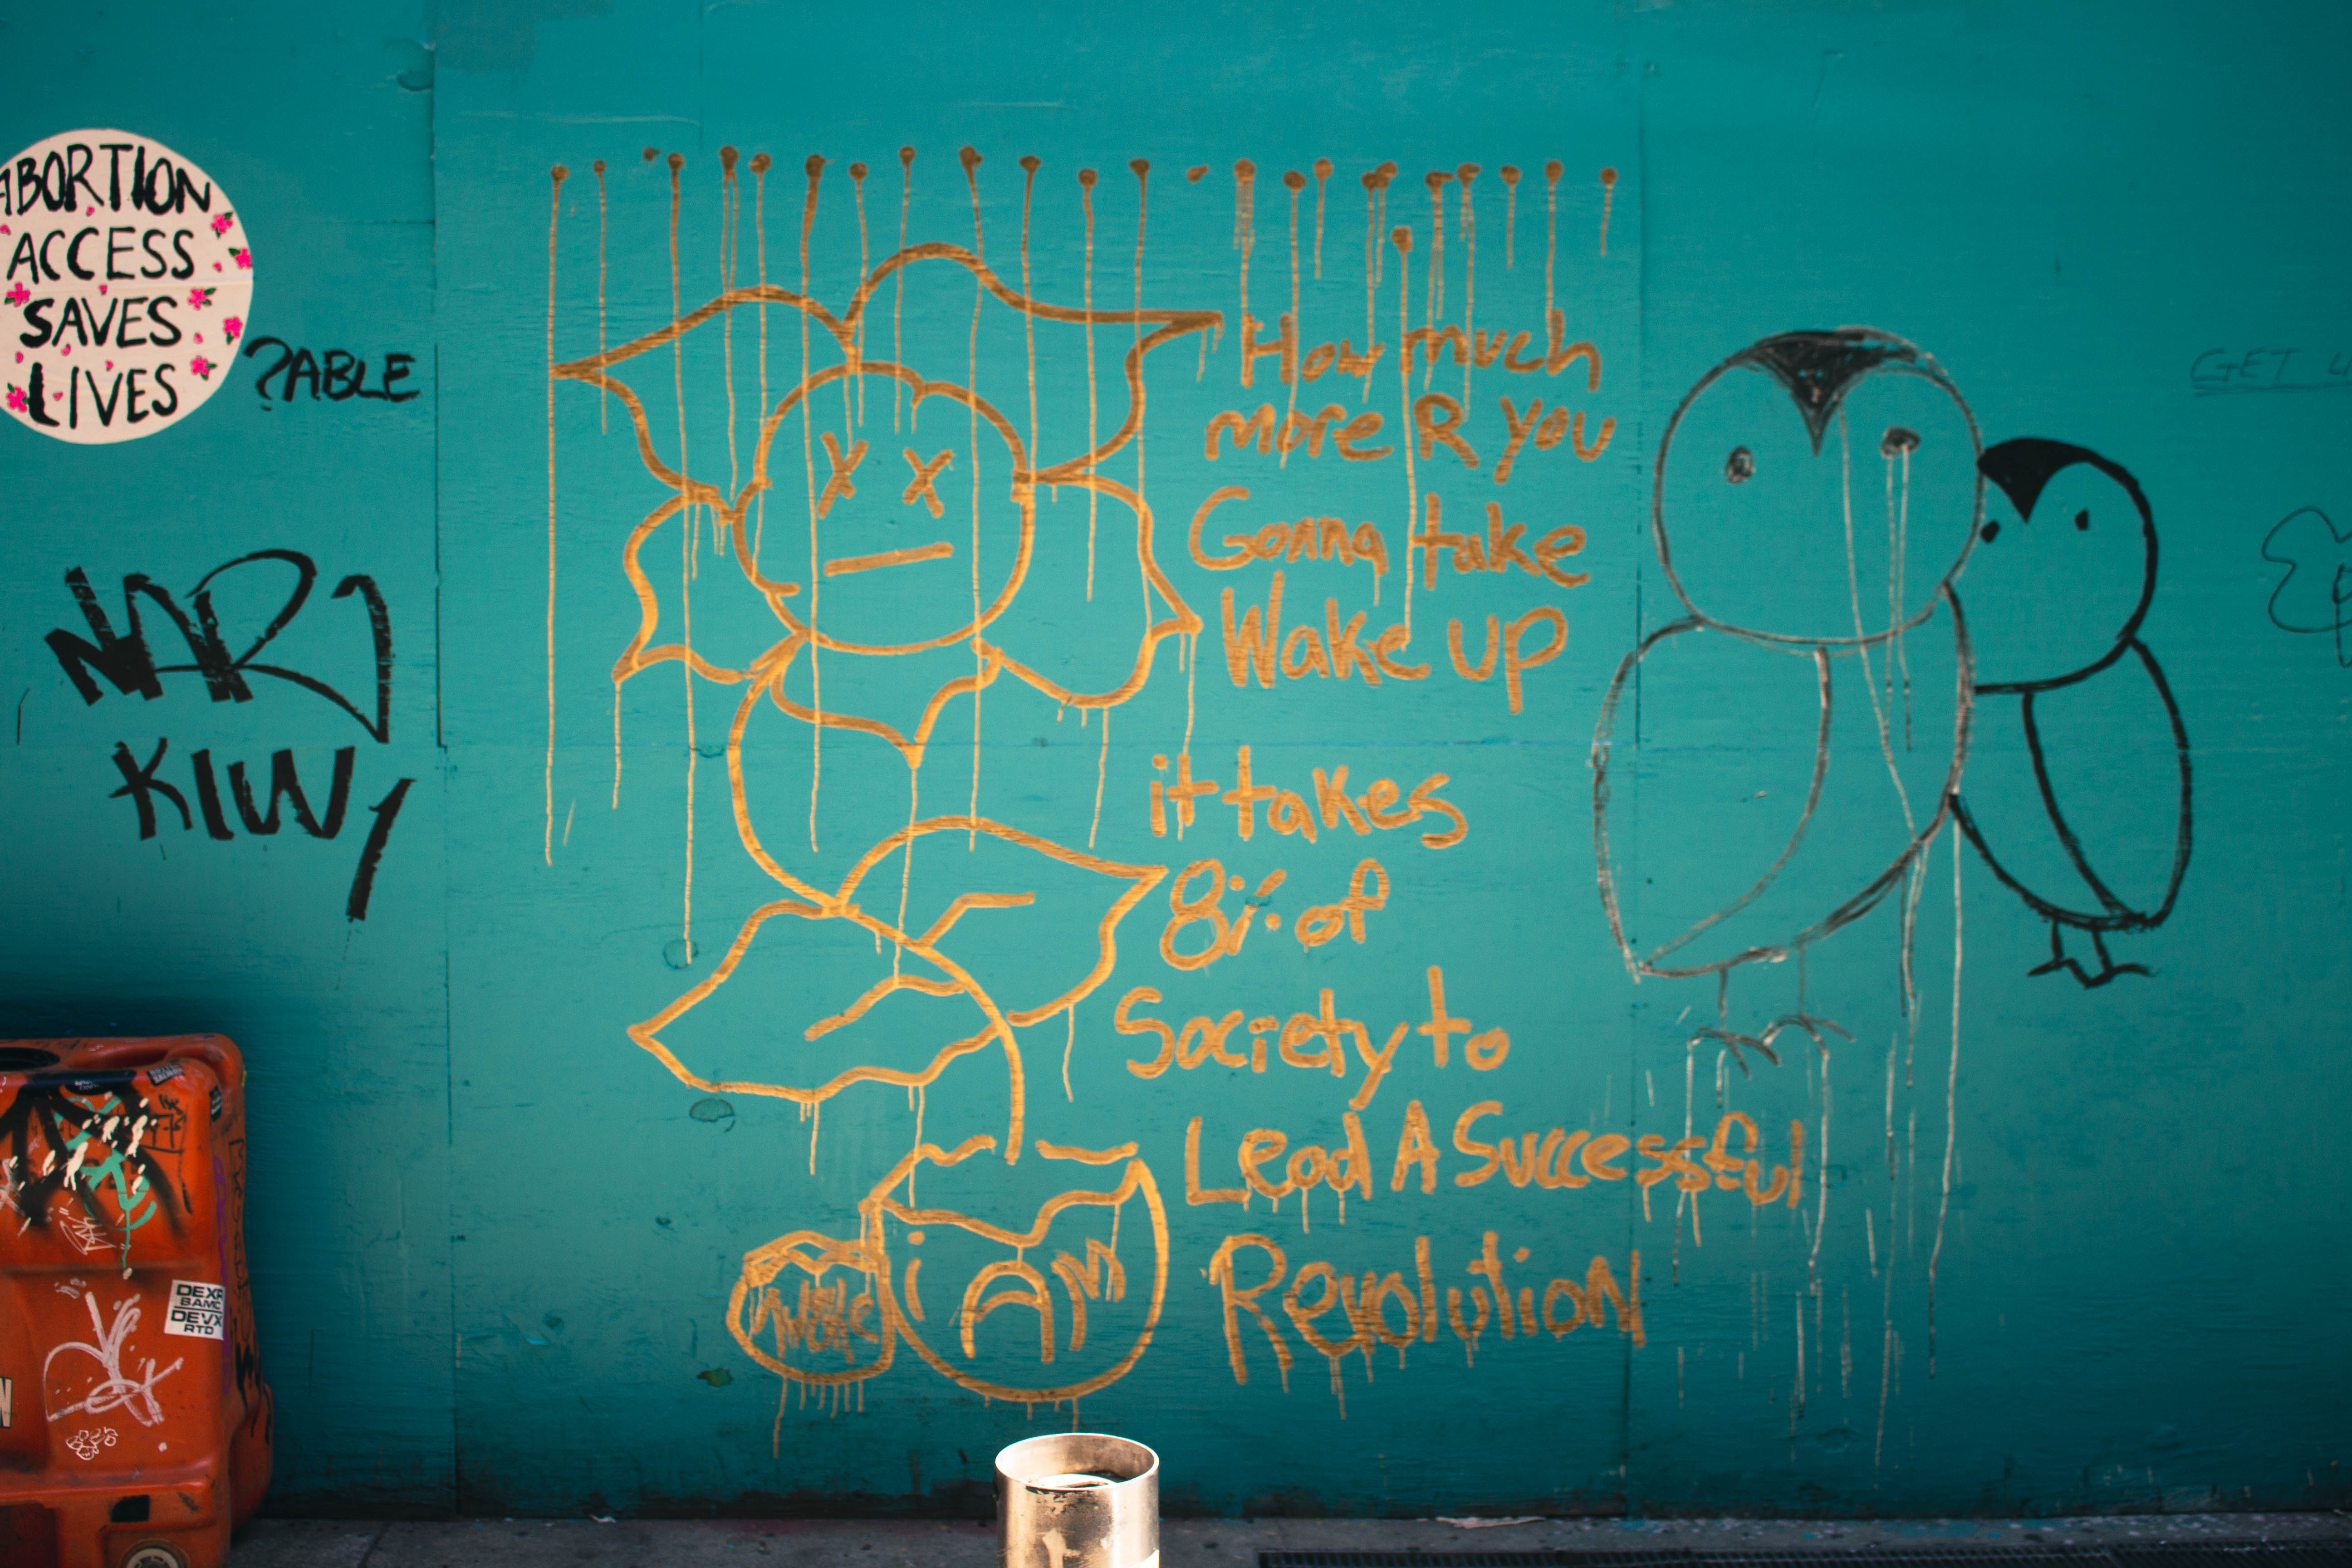 ABORTION
ACCESS
SAVES
LIVES
?ABLE
KIW
How much
more R you
Gonna take
Wake up
it takes
8% of
Society to
Lead A Successful
Revolution
i AM
GET
DEXR
BAMC
DEVX
RTD